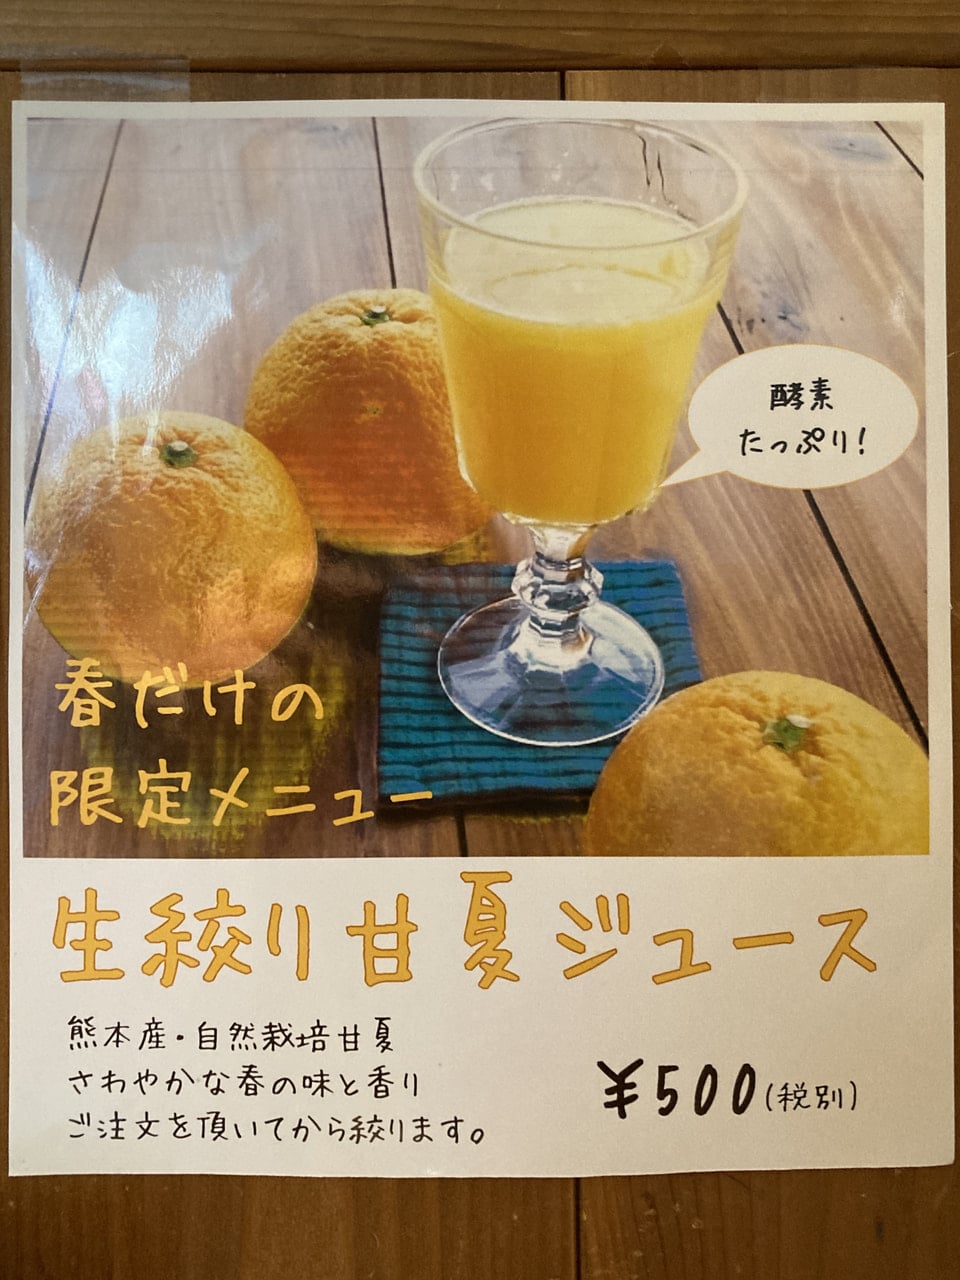 酵素
たっぷり!
春だけの
限定メニュー
生絞り甘夏ジュース
熊本産・自然栽培甘夏
さわやかな春の味と香り
ご注文を頂いてから絞ります。
¥500(税別)